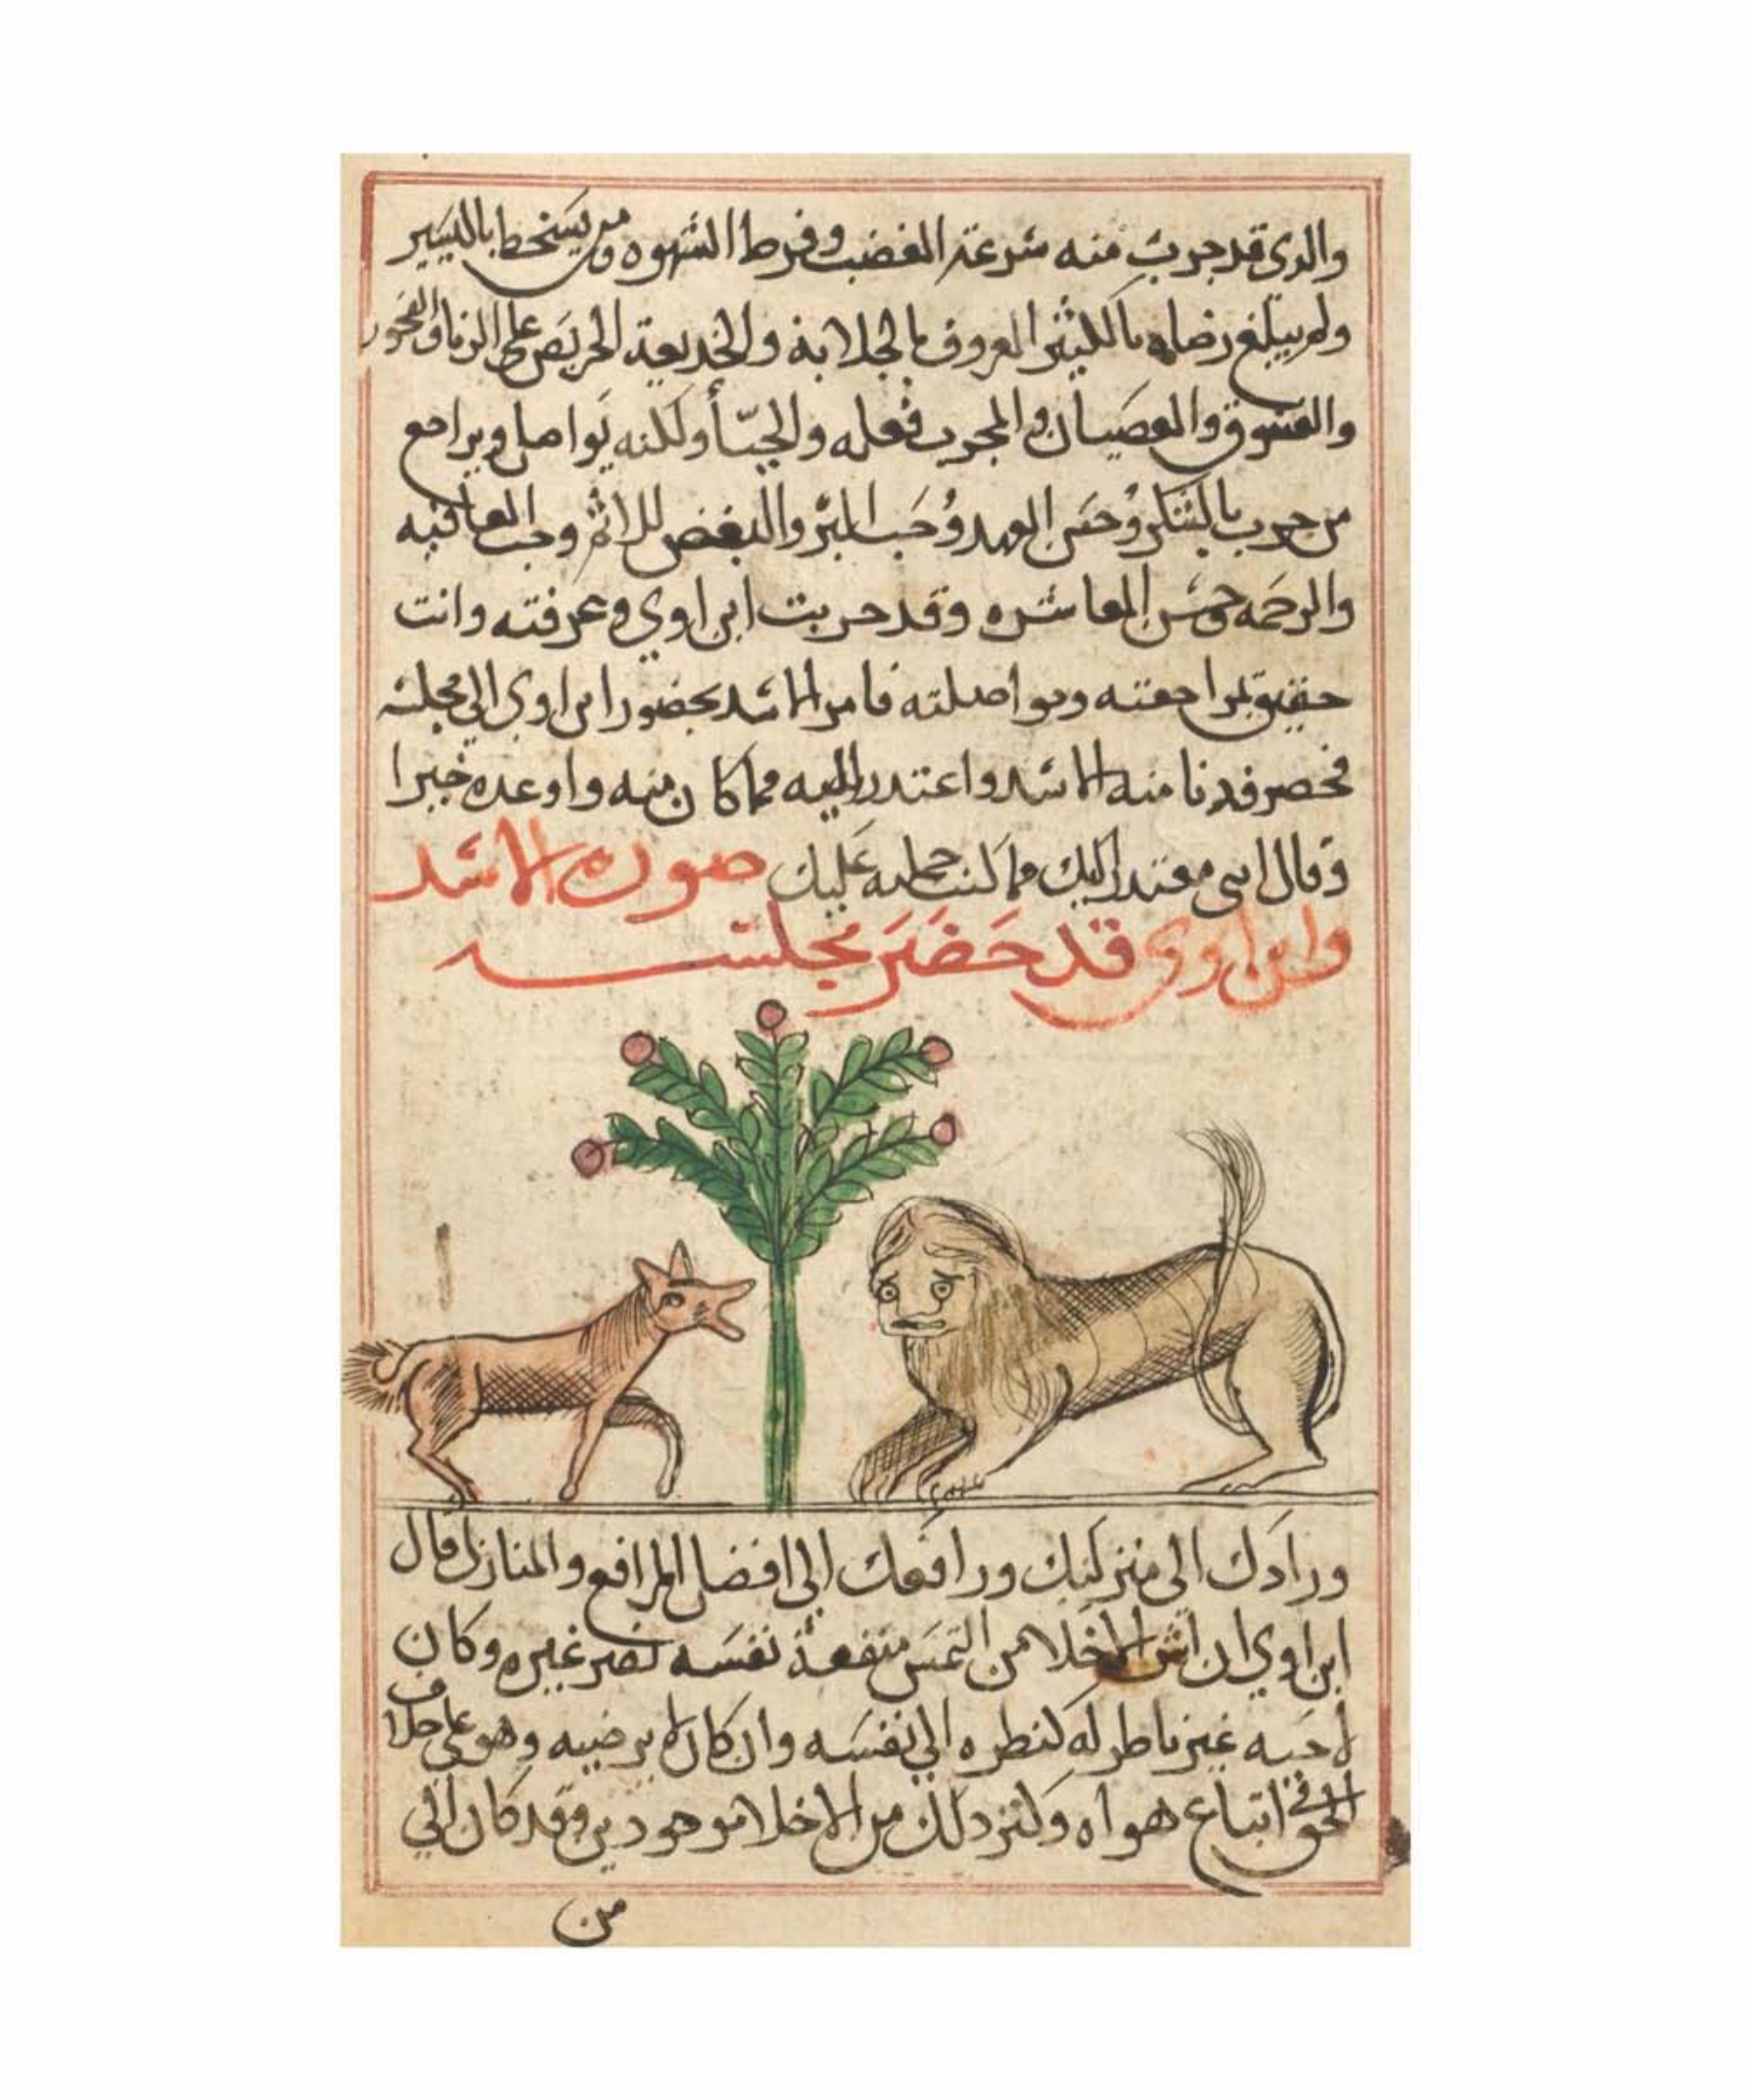 والدي قد جربت منه سرعة الغضب وفرط الشهوه ومن يسخط باليسير
ولم يبلغ رضاه بالكثير المعروف بالخلابة والخديعة الحريص علي الزنا والفجور
والفسوق والعصيان والمجرب فعله ولكنه يواصل ويراجع
من جرب بالشكر وحسن العهد وحب البر والبغض للاثم وحب العاقبه
والرحمه وحسن المعاشره وقد جربت ابن اوي وعرفته وانت
حقيق بمراجعته ومواصلته فامر الاسد بحضور ابن اوي الي مجلسه
فحضر فدنا منه الاسد واعتدر اليه مما كان منه واوعده خيرا
وقال اني معتدر اليك مما كنت حملته عليك صورة الاسد
وابن اوي قد حضر مجلسه
ورادك الي منزلتك ورافعك الي افضل المرافع والمنازل قال
ابن اوي ان اشر الاخلا من التمس منفعة نفسه بضر غيره وكان
لاحبه غير ناظر له كنظره الي نفسه وان كان يرضيه وهو علي خلاف
الحق في اتباع هواه وكثير دلك من الاخلا موجودين وقد كان الي
من